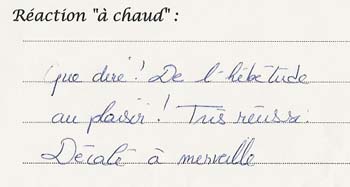 Réaction "à chaud" :
Que dire ! De l'hébétude
au plaisir ! Très réussi.
Décalé à merveille